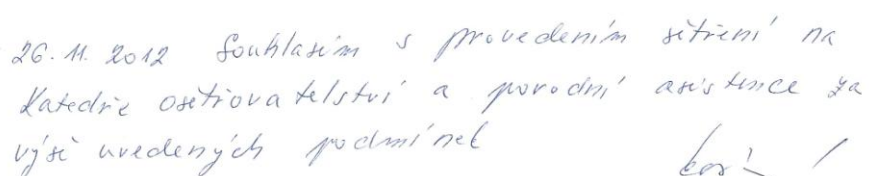 26. 11. 2012 Souhlasím s provedením šetření na
Katedře ošetřovatelství a porodní asistence za
výše uvedených podmínek